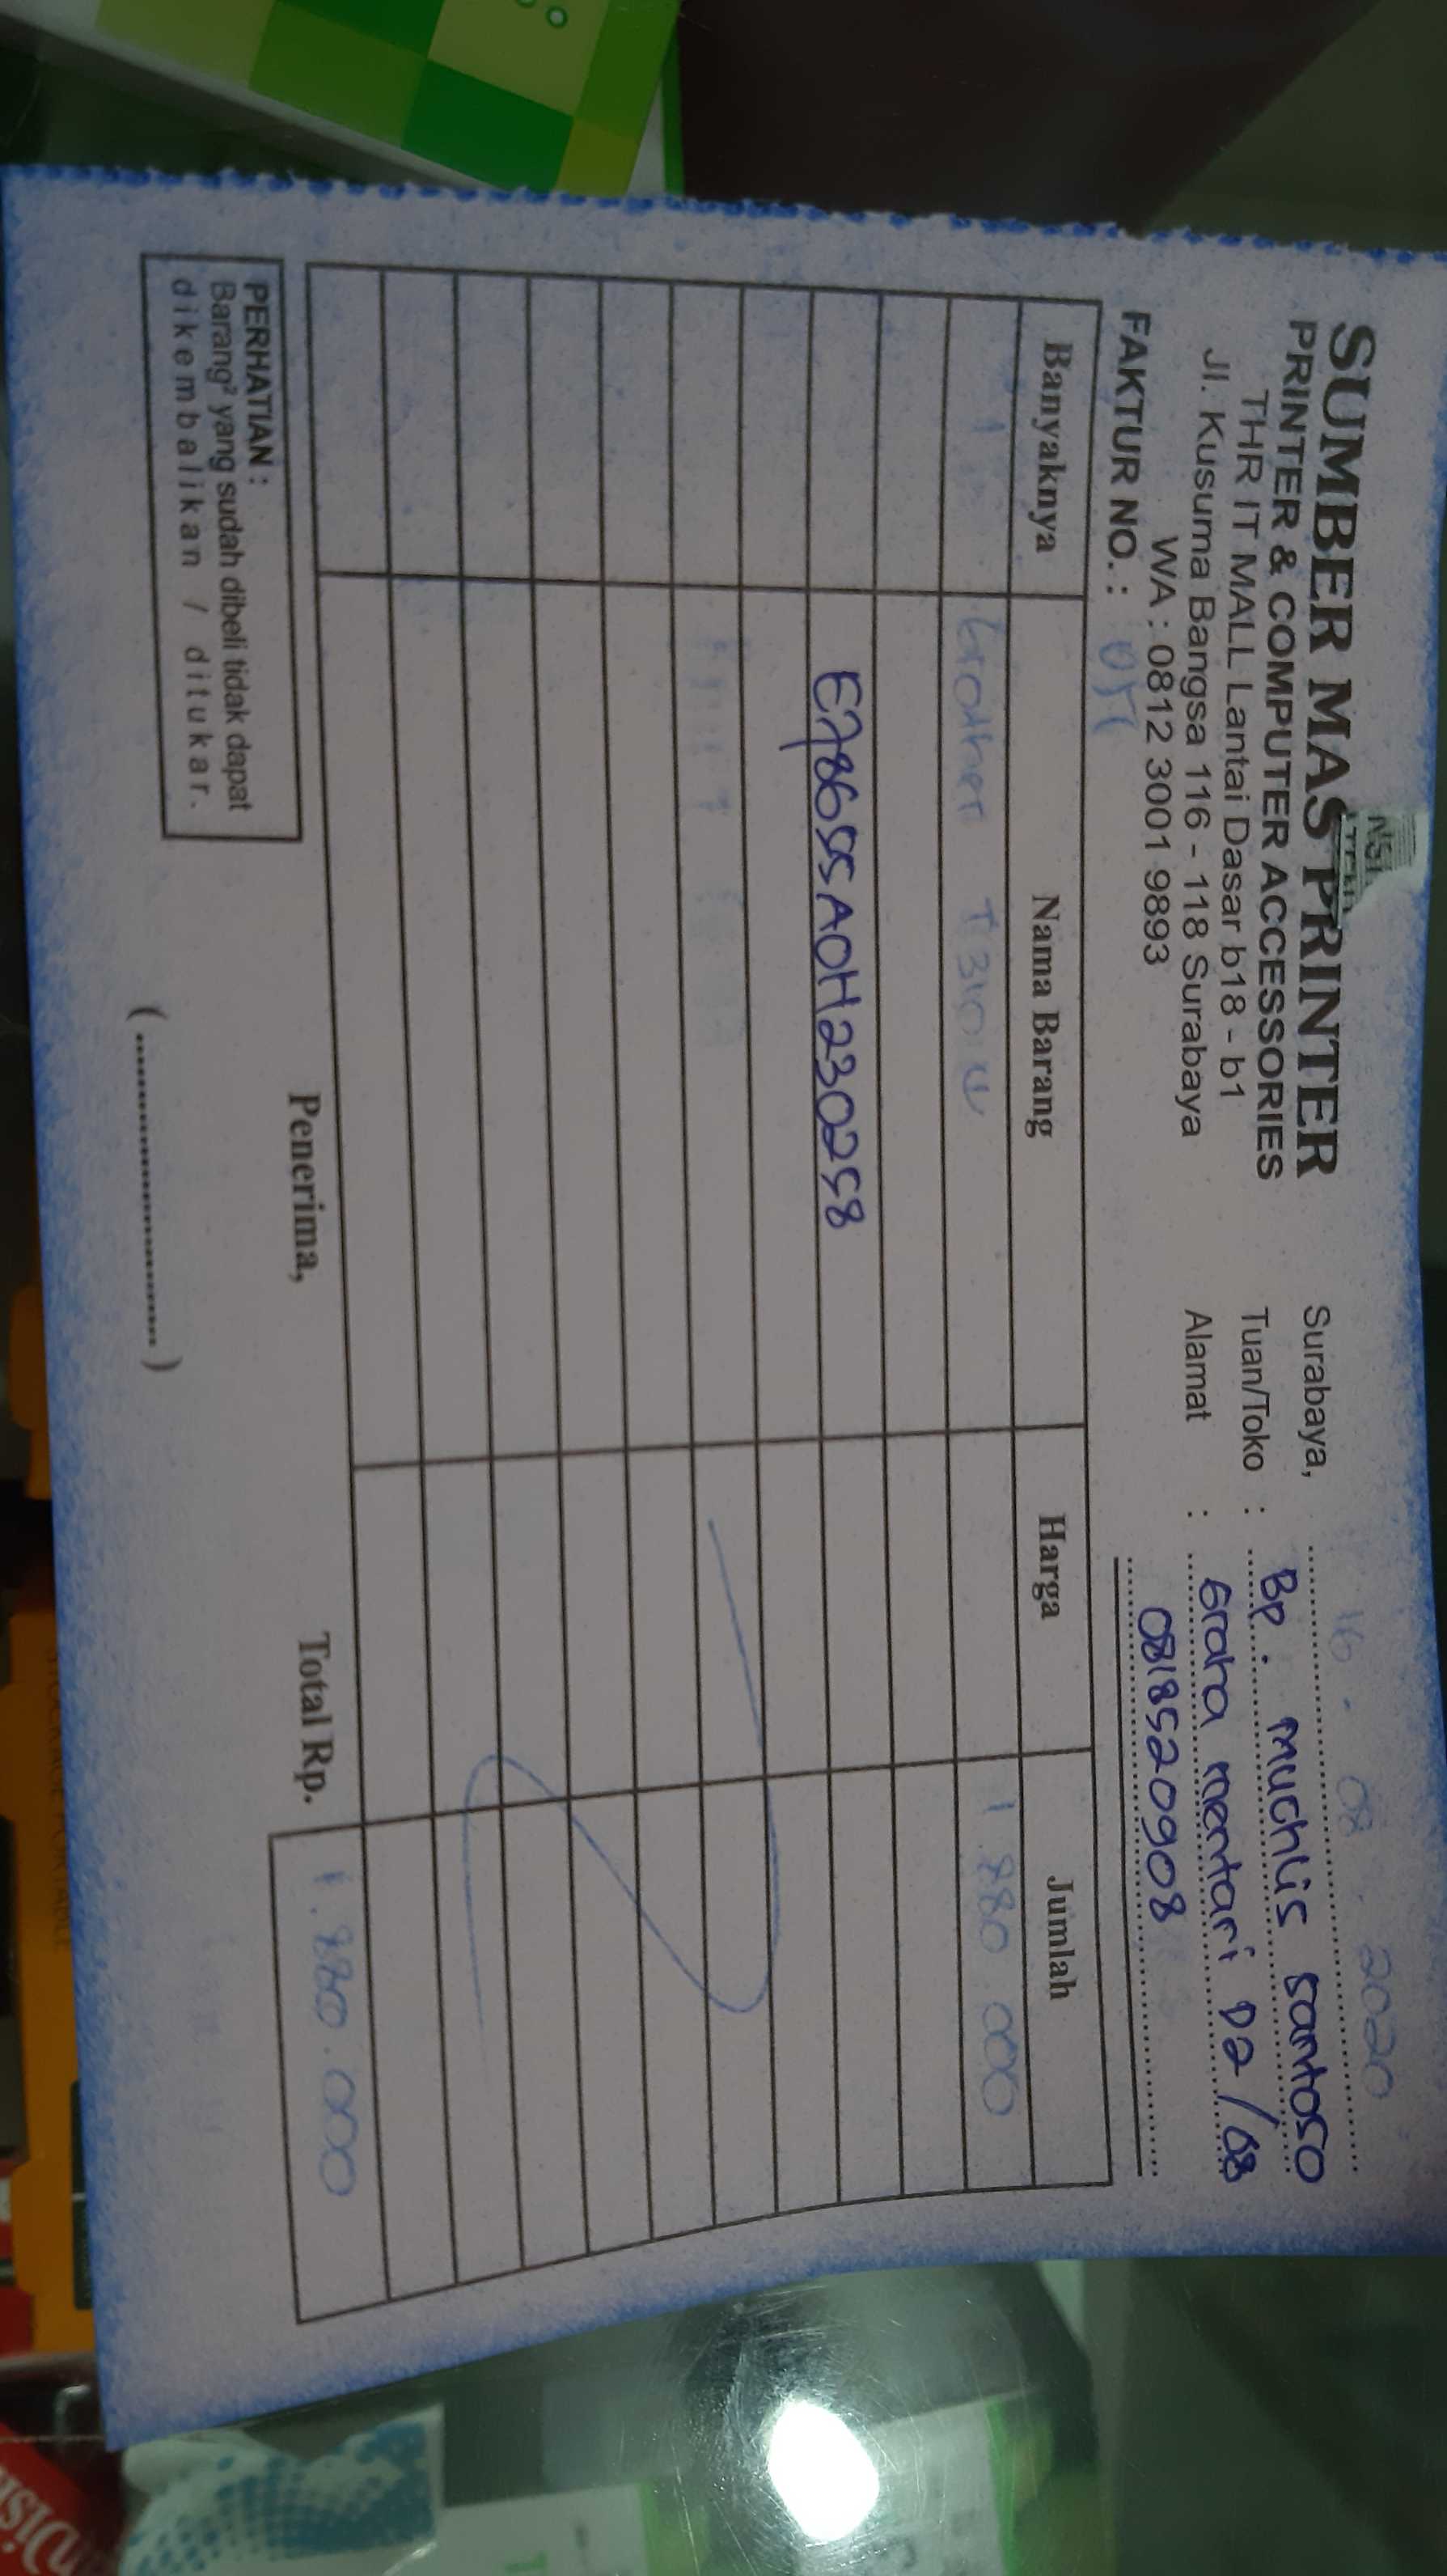 SUMBER MAS PRINTER
PRINTER & COMPUTER ACCESSORIES
THR IT MALL Lantai Dasar b18 - b1
Jl. Kusuma Bangsa 116 - 118 Surabaya
WA : 0812 3001 9893
FAKTUR NO. :
Surabaya, 16 - 08 - 2020
Tuan/Toko : Bp. Muchlis Santoso
Alamat : Graha mentari D2/08
0818520908
Banyaknya Nama Barang Harga Jumlah
1 Brother 1.980.000
E78655A0H230258
Total Rp. 1.980.000
Penerima,
(........................)
PERHATIAN :
Barang² yang sudah dibeli tidak dapat
dikembalikan / ditukar.